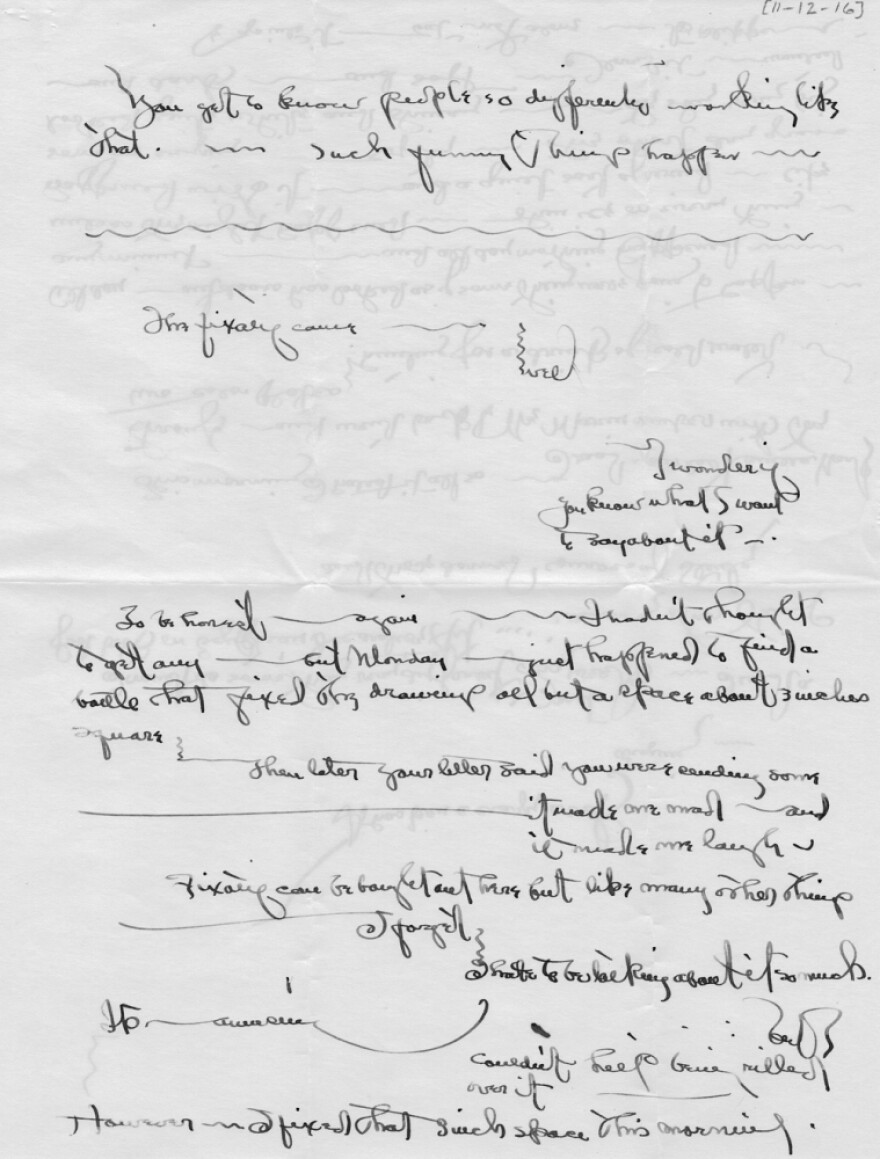 [11-12-16]
You get to know people so differently working like
that. — such funny things happen —
The fixatif came —
well
I wonder if
you know what I want
to say about it — .
To be honest — again — I hadn't thought
to get any — but Monday — just happened to find a
bottle that fixed the drawing all but a space about 3 inches
square
Then later your letter said you were sending some
it made me mad — and
it made me laugh —
Fixatif can be bought out here but like many other things
I forget
I hate to be talking about it so much.
It — amusing
but
couldn't help being riled
over it
However — I fixed that 3 inch space this morning .